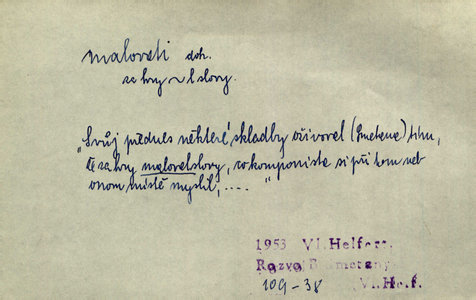 malovati dok.
za hry ~ l slovy.
„Svůj přednes některé skladby oživoval (Smetana) tím,
že za hry maloval slovy, co komponista si při tom neb
onom místě myslil, .... "
1953 Vl. Helfert:
Rozvoj Smetany
109-38 (Vl. Helf.